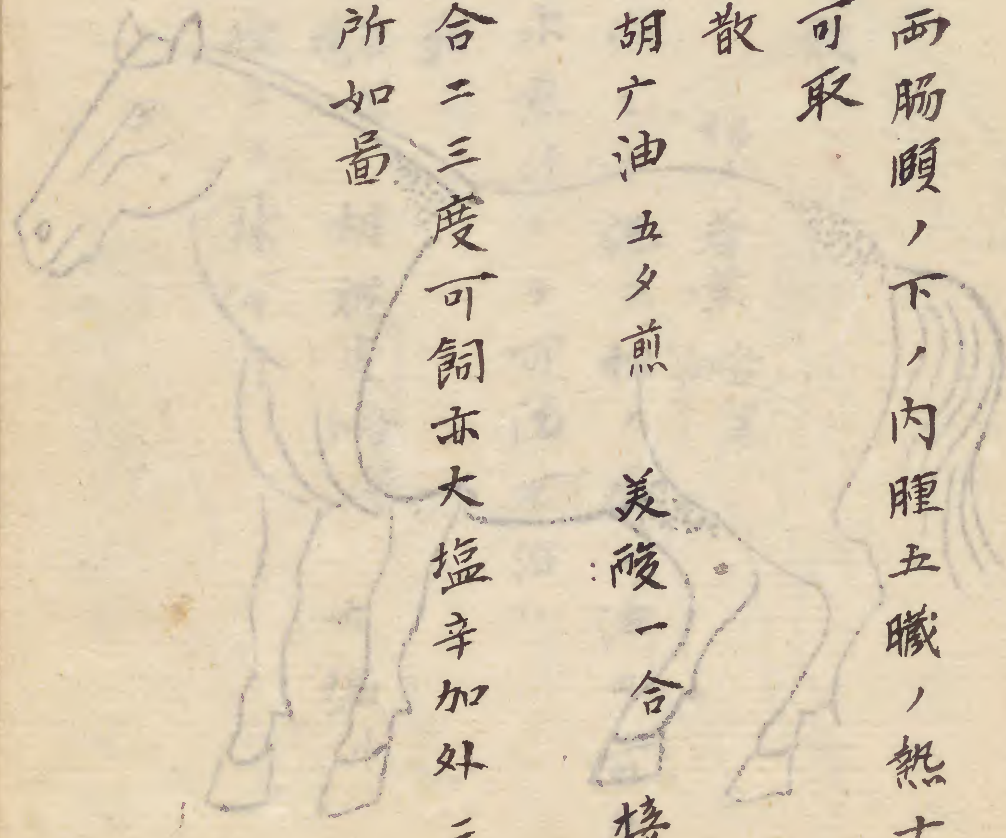 両腸頤ノ下ノ内腫五臓ノ熱
可取
散
胡广油五夕煎 美酸一合
合二三度可飼亦大塩辛加外
所如啚